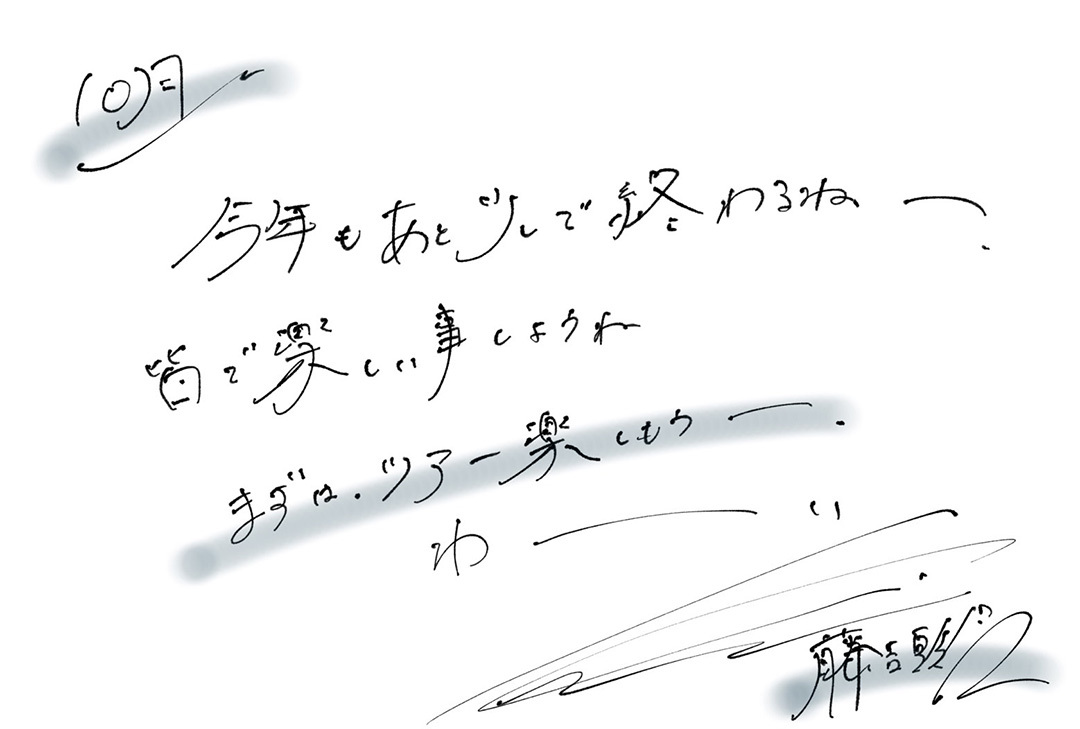 10月
今年もあと少しで終わるねー.
皆で楽しい事しようね
まずは.ツアー楽しもうー.
わーーい